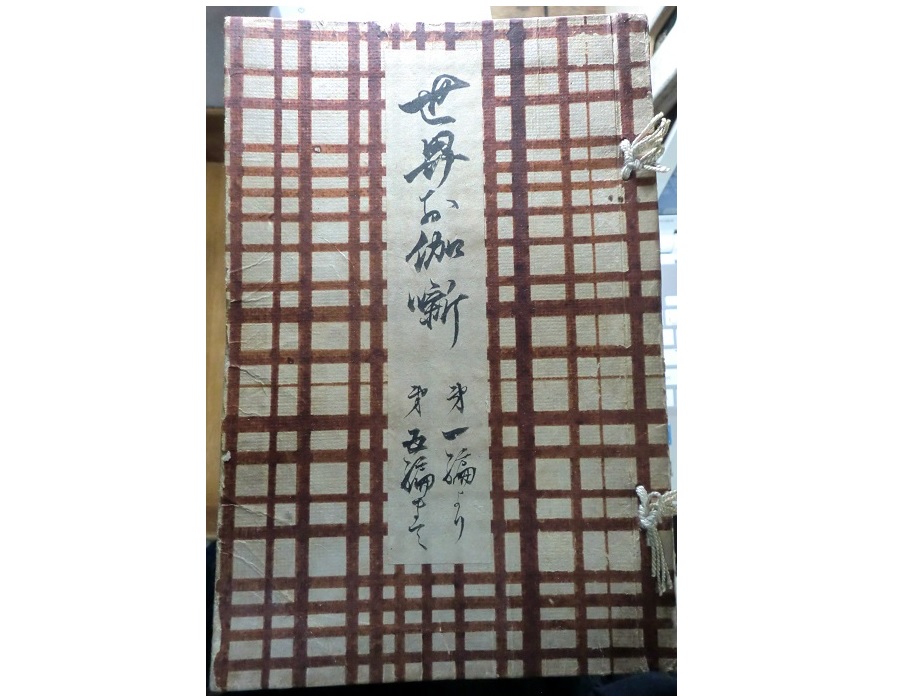 世界お伽噺
第一編より
第五編まで